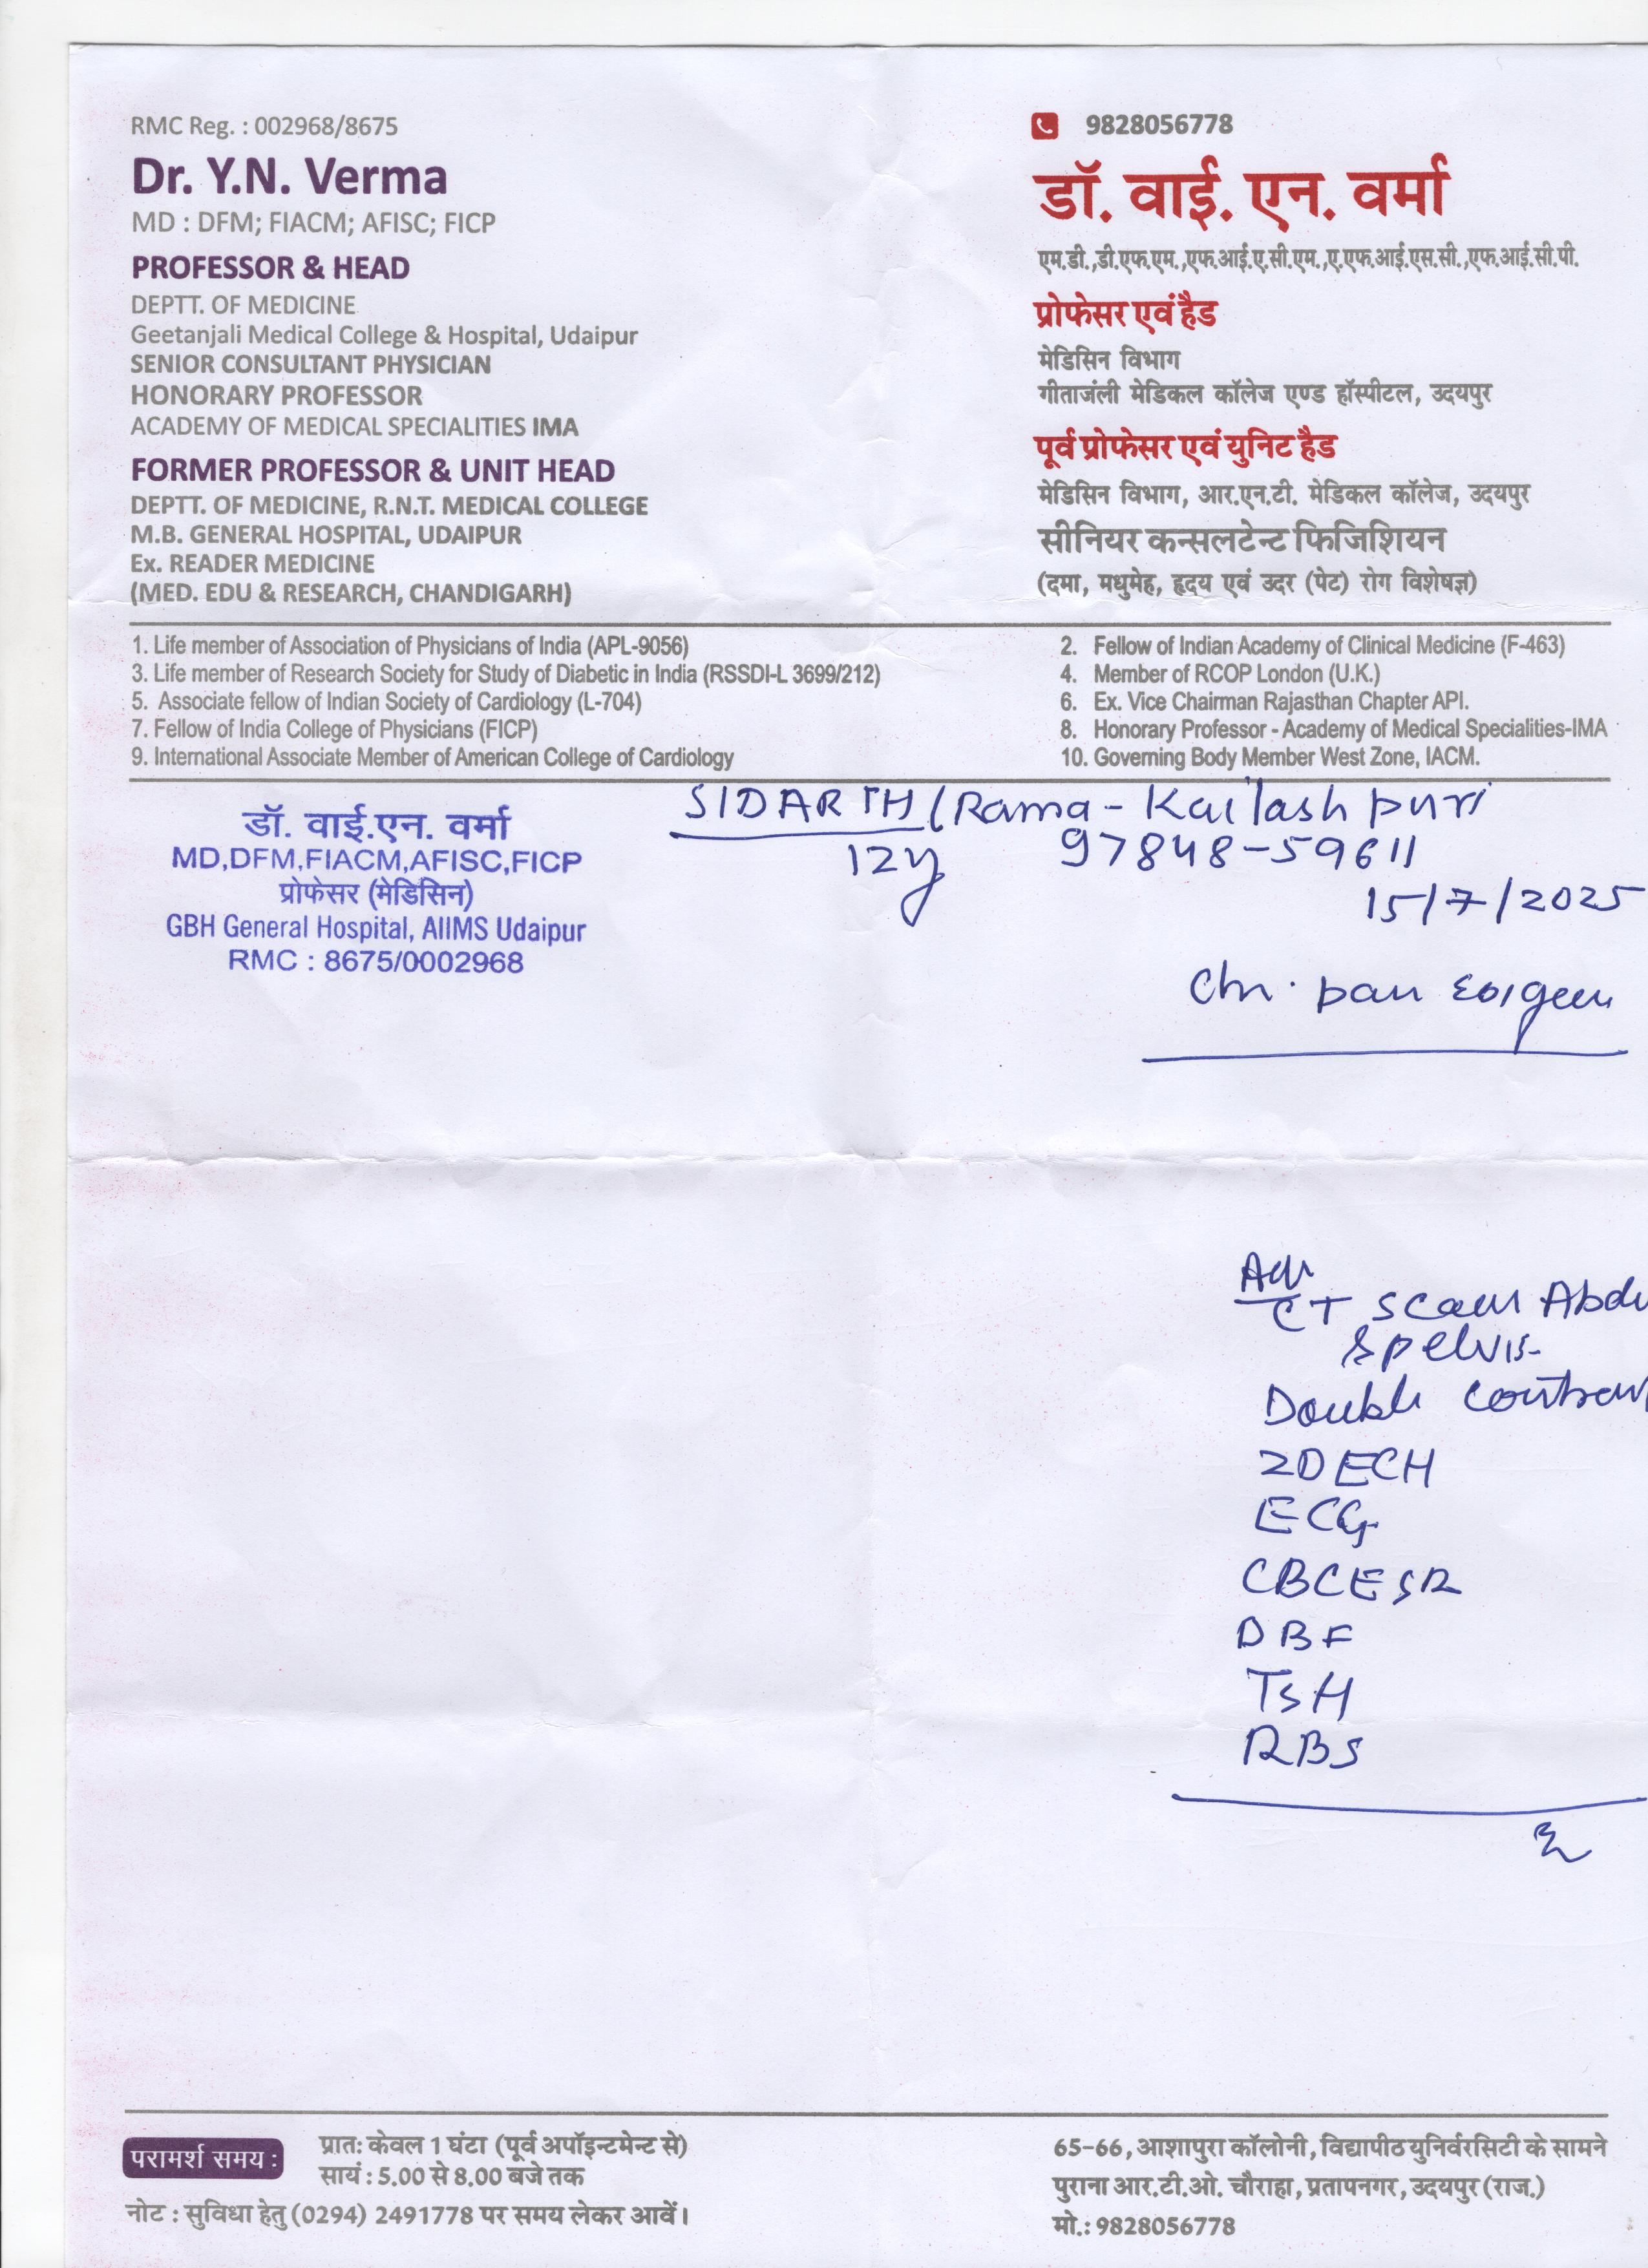 RMC Reg. : 002968/8675
Dr. Y.N. Verma
MD : DFM; FIACM; AFISC; FICP
PROFESSOR & HEAD
DEPTT. OF MEDICINE
Geetanjali Medical College & Hospital, Udaipur
SENIOR CONSULTANT PHYSICIAN
HONORARY PROFESSOR
ACADEMY OF MEDICAL SPECIALITIES IMA
FORMER PROFESSOR & UNIT HEAD
DEPTT. OF MEDICINE, R.N.T. MEDICAL COLLEGE
M.B. GENERAL HOSPITAL, UDAIPUR
Ex. READER MEDICINE
(MED. EDU & RESEARCH, CHANDIGARH)
9828056778
डॉ. वाई. एन. वर्मा
एम.डी.,डी.एफ.एम.,एफ.आई.ए.सी.एम.,ए.एफ.आई.एस.सी.,एफ.आई.सी.पी.
प्रोफेसर एवं हैड
मेडिसिन विभाग
गीताजंली मेडिकल कॉलेज एण्ड हॉस्पीटल, उदयपुर
पूर्व प्रोफेसर एवं युनिट हैड
मेडिसिन विभाग, आर.एन.टी. मेडिकल कॉलेज, उदयपुर
सीनियर कन्सलटेन्ट फिजिशियन
(दमा, मधुमेह, हृदय एवं उदर (पेट) रोग विशेषज्ञ)
1. Life member of Association of Physicians of India (APL-9056)
2. Fellow of Indian Academy of Clinical Medicine (F-463)
3. Life member of Research Society for Study of Diabetic in India (RSSDI-L 3699/212)
4. Member of RCOP London (U.K.)
5. Associate fellow of Indian Society of Cardiology (L-704)
6. Ex. Vice Chairman Rajasthan Chapter API.
7. Fellow of India College of Physicians (FICP)
8. Honorary Professor - Academy of Medical Specialities-IMA
9. International Associate Member of American College of Cardiology
10. Governing Body Member West Zone, IACM.
डॉ. वाई.एन. वर्मा
MD,DFM,FIACM,AFISC,FICP
प्रोफेसर (मेडिसिन)
GBH General Hospital, AIIMS Udaipur
RMC : 8675/0002968
SIDARTH / Rama - Kailash puri
12y 97848-59611
15/7/2025
Chr.
CT Scan
& pelvis
Double
2D ECH
ECG
CBC ESR
DBF
TSH
RBS
परामर्श समय :
प्रातः केवल 1 घंटा (पूर्व अपॉइन्टमेन्ट से)
सायं : 5.00 से 8.00 बजे तक
नोट : सुविधा हेतु (0294) 2491778 पर समय लेकर आवें।
65-66, आशापुरा कॉलोनी, विद्यापीठ युनिर्वरसिटी के सामने
पुराना आर.टी.ओ. चौराहा, प्रतापनगर, उदयपुर (राज.)
मो.: 9828056778